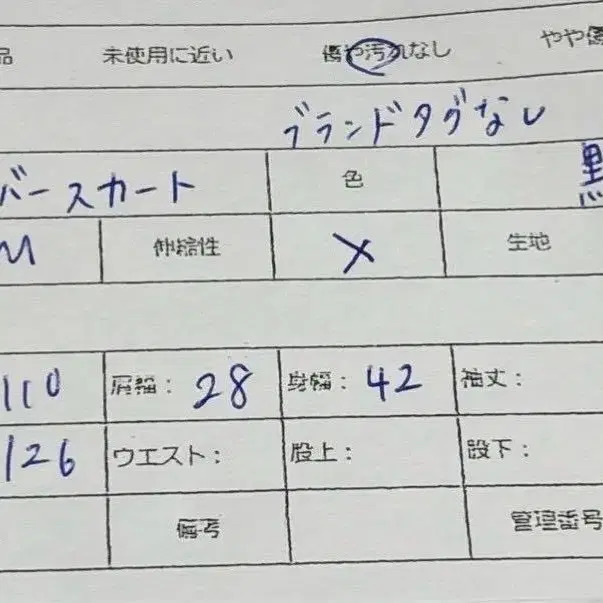 品 未使用に近い 傷や汚れなし やや傷
ブランドタグなし
バースカート 色 黒
M 伸縮性 × 生地
110 肩幅: 28 身幅: 42 袖丈:
126 ウエスト: 股上: 股下:
備考 管理番号